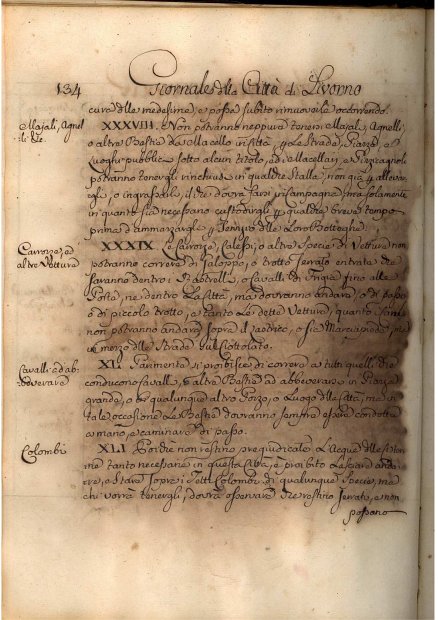 134 Giornale della Città di Livorno
cura delle medesime, e possa subito rimuoversi occorrendo.
Majali, Agnel
li &c.
XXXVIII. Non potranno neppure tenersi Majali, Agnelli,
o altre Bestie da Macello in Città, per le Strade, Piazze, e
Luoghi pubblici sotto alcun titolo, ed i Macellari, e Pizzicagnoli
potranno tenergli rinchiusi in qualche Stalla, non già per allevar-
gli, o ingrassargli, il che dovrà farsi in Campagna, ma solamente
in quanto sia necessario custodirgli per qualche breve tempo
prima d'ammazzargli per servizio delle Loro Botteghe.
Carrozze, ed
altre Vetture
XXXIX. Le Carrozze, Calessi, o altre Specie di Vetture non
potranno correre di Galoppo, o trotto serrato entrate che
saranno dentro i Rastrelli, o Cavalli di Frigia fino alla
Porta, nè dentro la Città, ma dovranno andare, o di passo
o di piccolo trotto, e tanto le dette Vetture, quanto
non potranno andare sopra il o sia Marciapiede,
in mezzo alle Strade sul Ciottolato.
Cavalli ed ab-
beverare
XL. Parimente si proibisce di correre a tutti quelli che
conducono Cavalli, e altre Bestie ad abbeverare in Piazza
grande, o a qualunque altro Pozzo, o Luogo della Città, ma in
tale occasione le Bestie dovranno sempre essere condotte
a mano, e caminare di passo.
Colombi
XLI. Perchè non restino pregiudicate l'Acque delle Cister-
ne tanto necessarie in questa Città, è proibito lasciare anda-
re, e stare sopra i Tetti Colombi di qualunque Specie, ma
chi vorrà tenergli, dovrà osservare che restino serrati, e non
possano